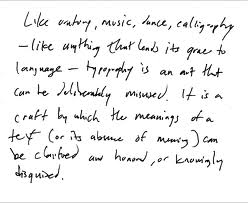 Like oratory, music, dance, calligraphy
– like anything that lends its grace to
language – typography is an art that
can be deliberately misused. It is a
craft by which the meanings of a
text (or its absence of meaning) can
be clarified and honored, or knowingly
disguised.